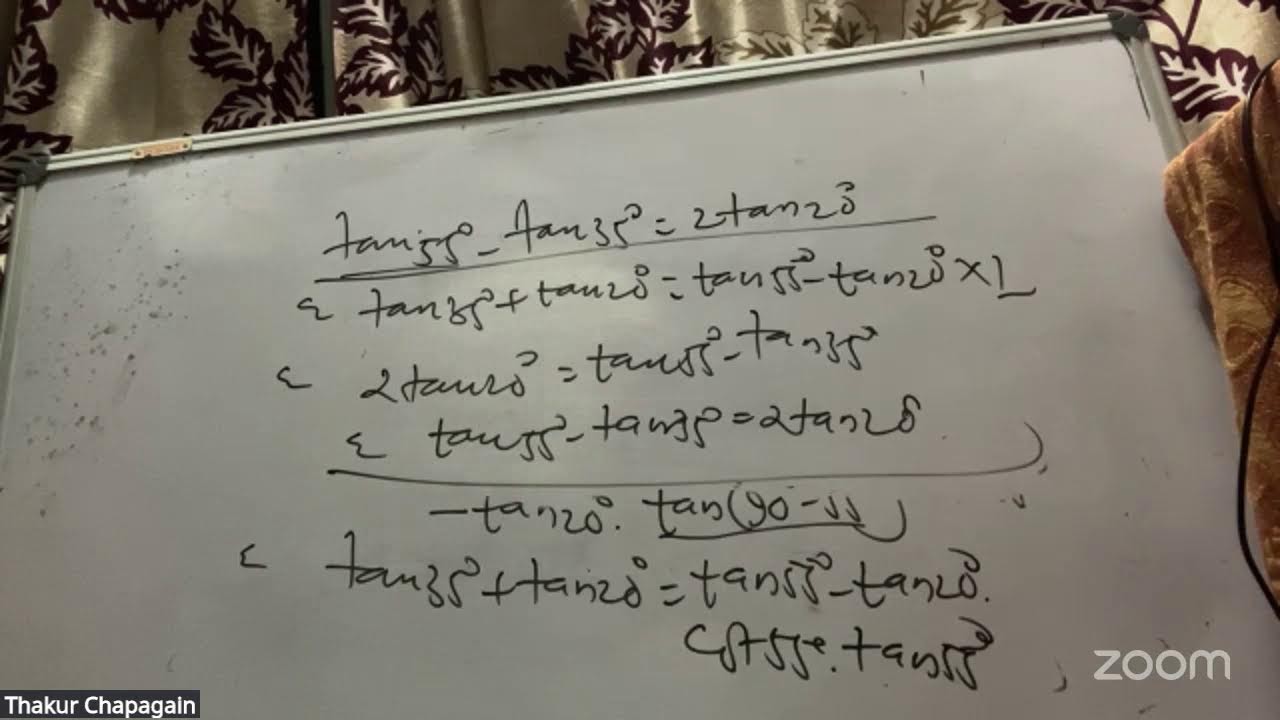 tan55° - tan35° = 2tan20°
tan35° + tan20° = tan55° - tan20° × 1
2tan20° = tan55° - tan35°
tan55° - tan35° = 2tan20°
- tan20°. tan(90 - 55)
tan35° + tan20° = tan55° - tan20°.
cot55°. tan55°
zoom
Thakur Chapagain